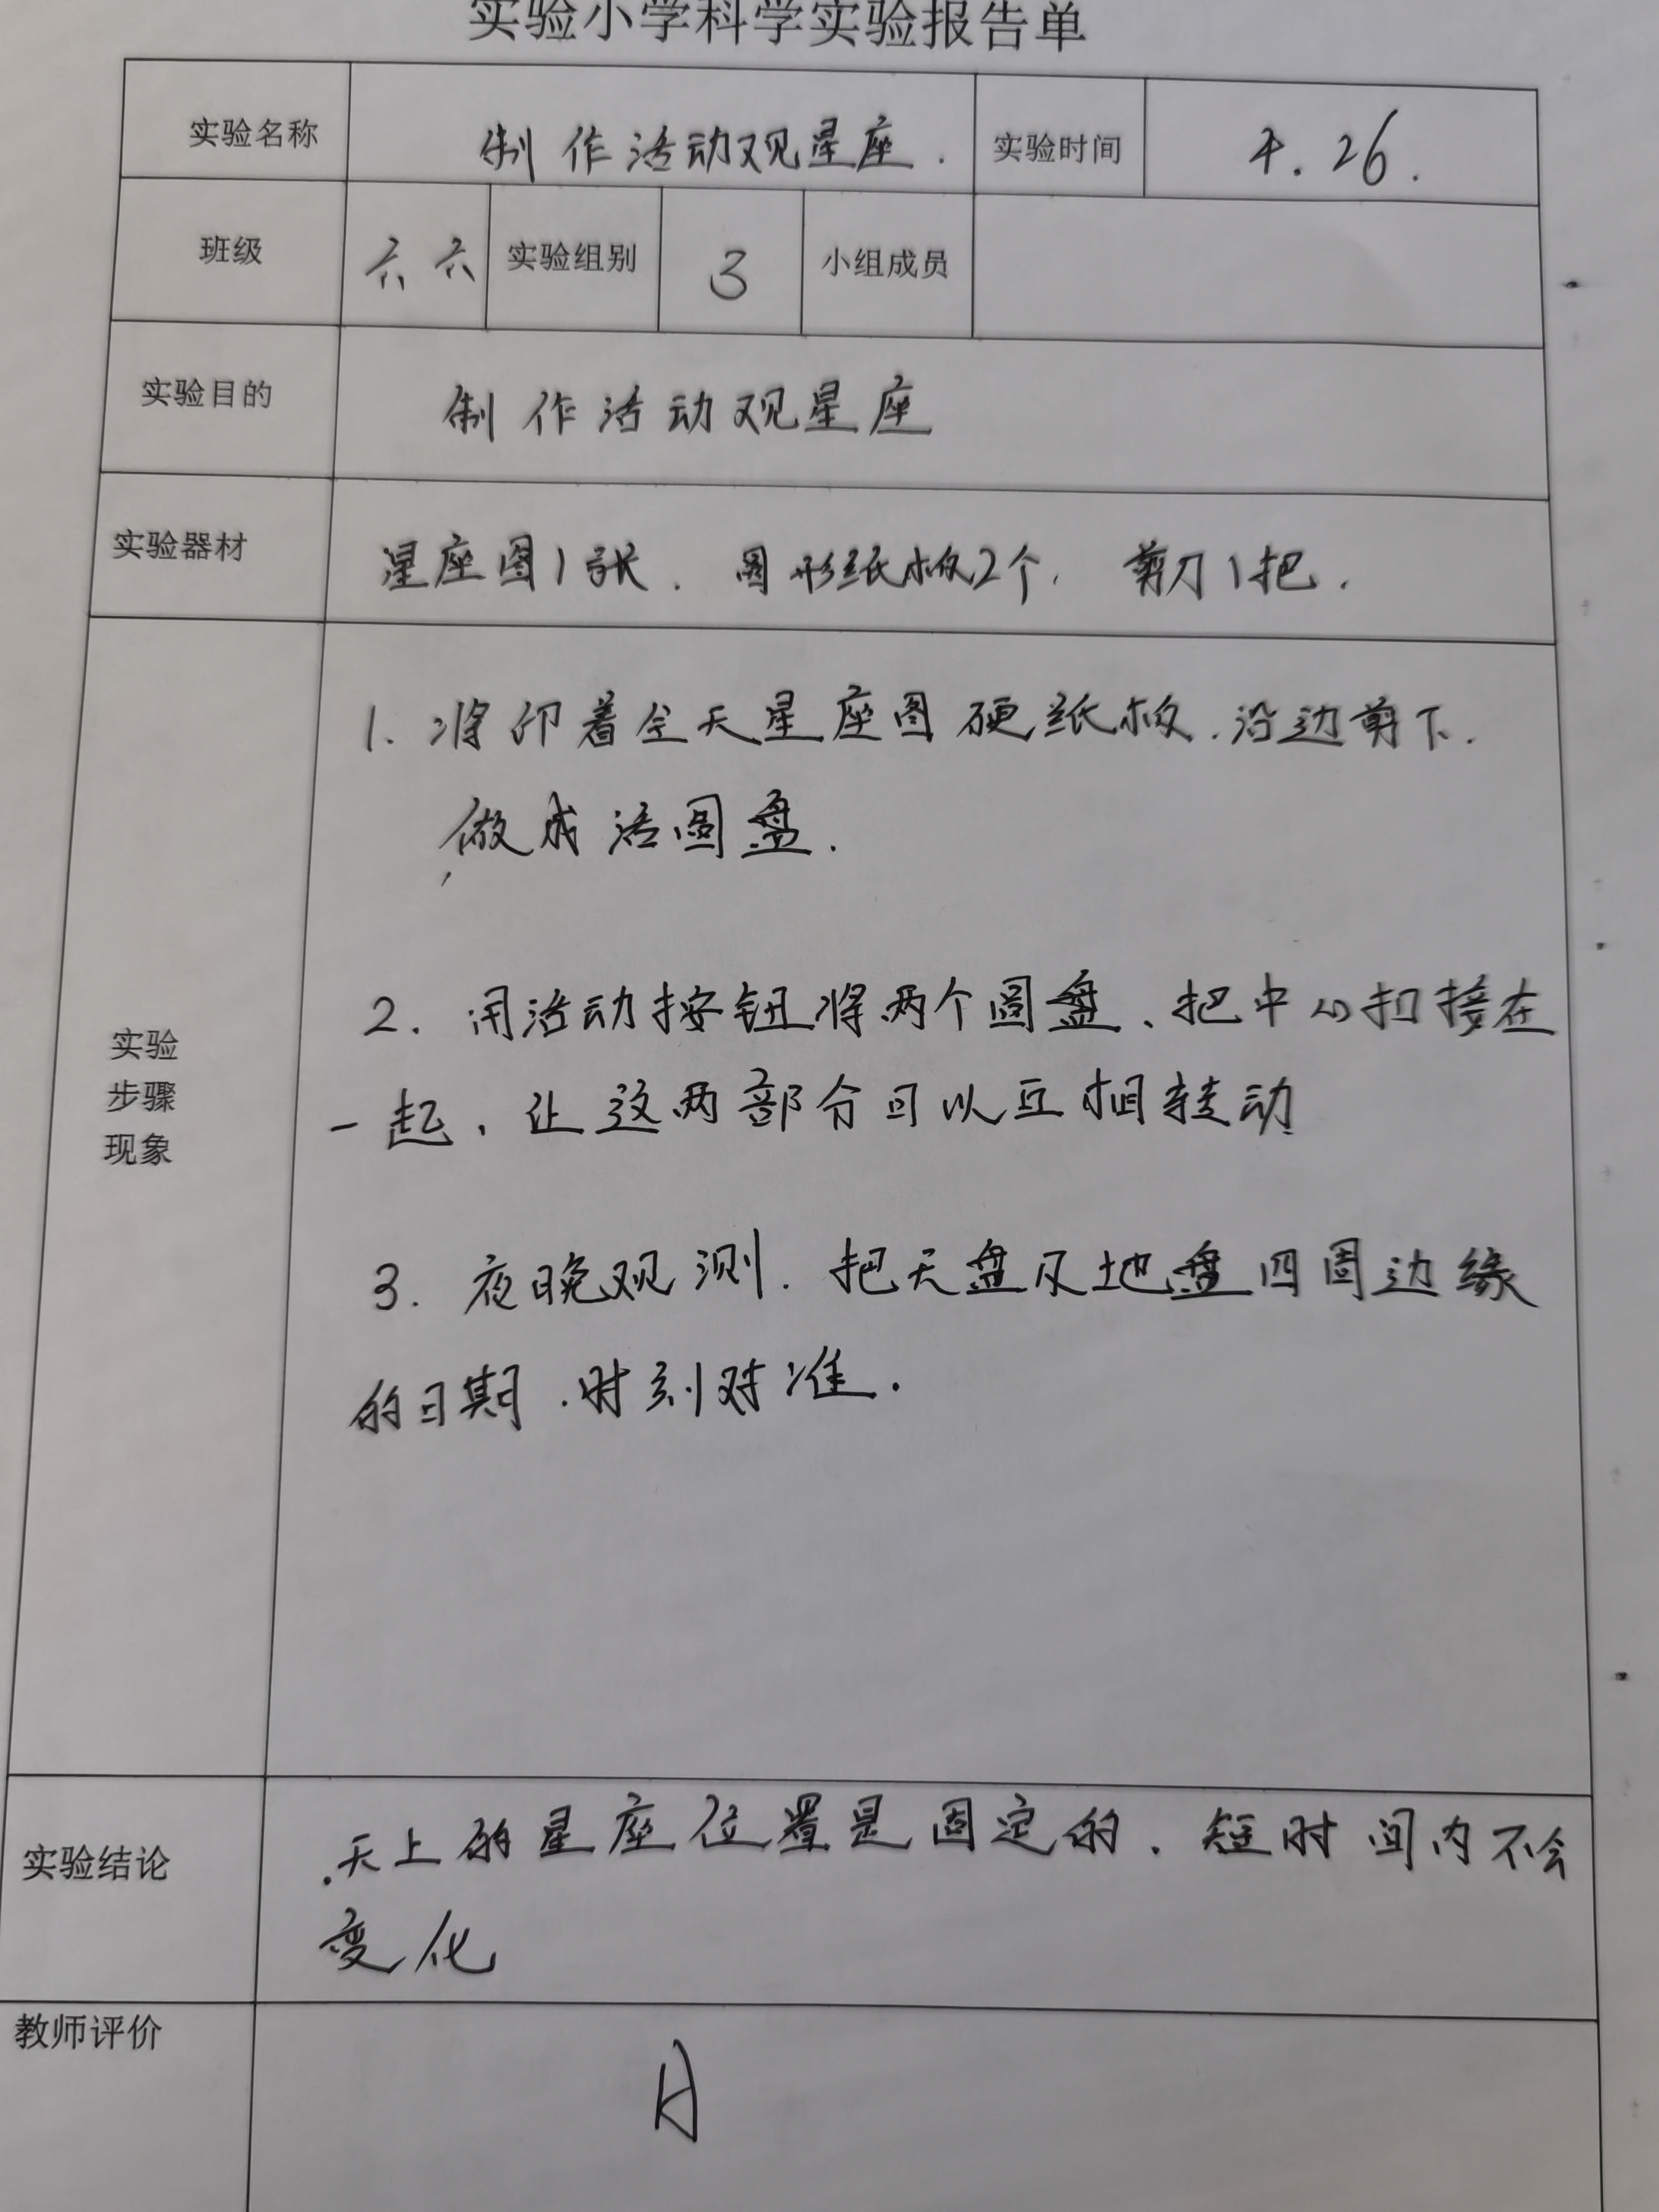 实验小学科学实验报告单
实验名称 制作活动观星座. 实验时间 4.26.
班级 六六 实验组别 3 小组成员
实验目的 制作活动观星座
实验器材 星座图1张. 圆形纸板2个, 剪刀1把.
1. 将印着全天星座图硬纸板.沿边剪下.
做成活圆盘.
2. 用活动按钮将两个圆盘、把中心扣接在
一起、让这两部分可以互相转动
实验
步骤
现象
3. 夜晚观测. 把天盘及地盘四周边缘
的日期.时刻对准.
实验结论 .天上的星座位置是固定的. 短时间内不会
变化
教师评价
A